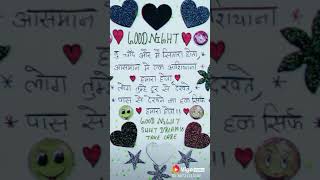 GOOD NIGHT
तु चाँद और में सितारा होता
आसमान में एक आशियाना
हमारा होता
लोग तुम्हे दूर से देखते
पास से देखने का हक सिर्फ
हमारा होता !!
GOOD NIGHT
SWEET DREAMS
TAKE CARE